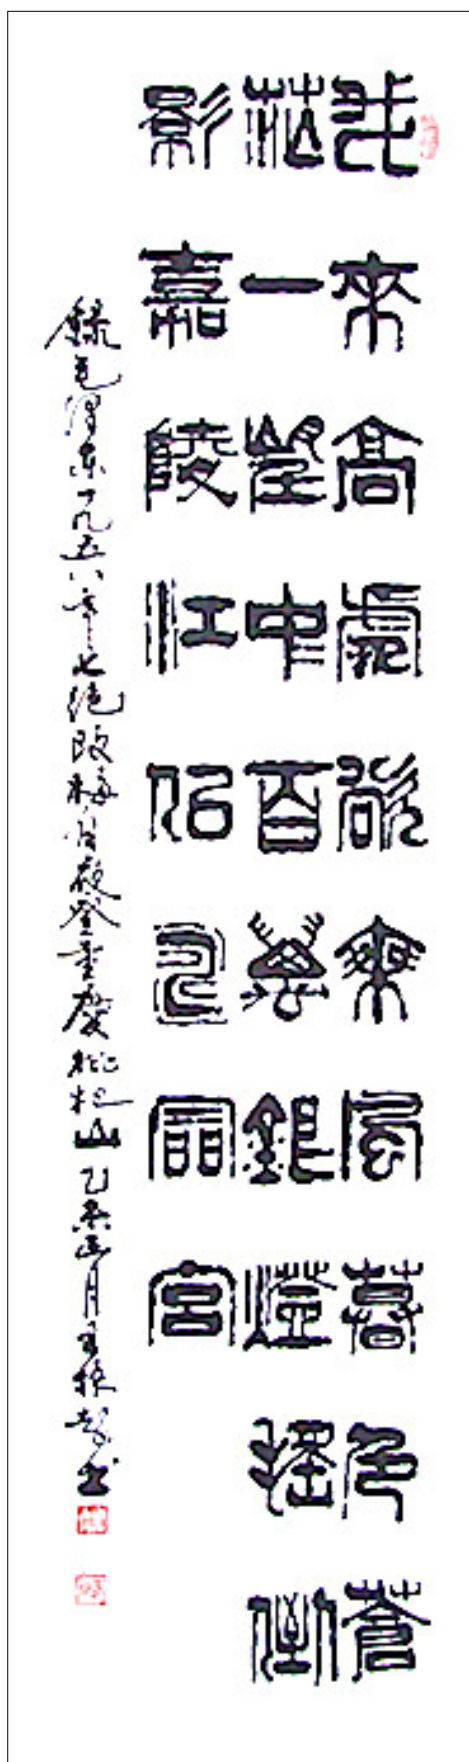 我來高處欲乘風暮色蒼
茫一望中百萬銀燈搖倒
影嘉陵江似水晶宮
錄毛澤東一九五八年七絕改梅白夜登重慶枇杷山乙未正月王振書